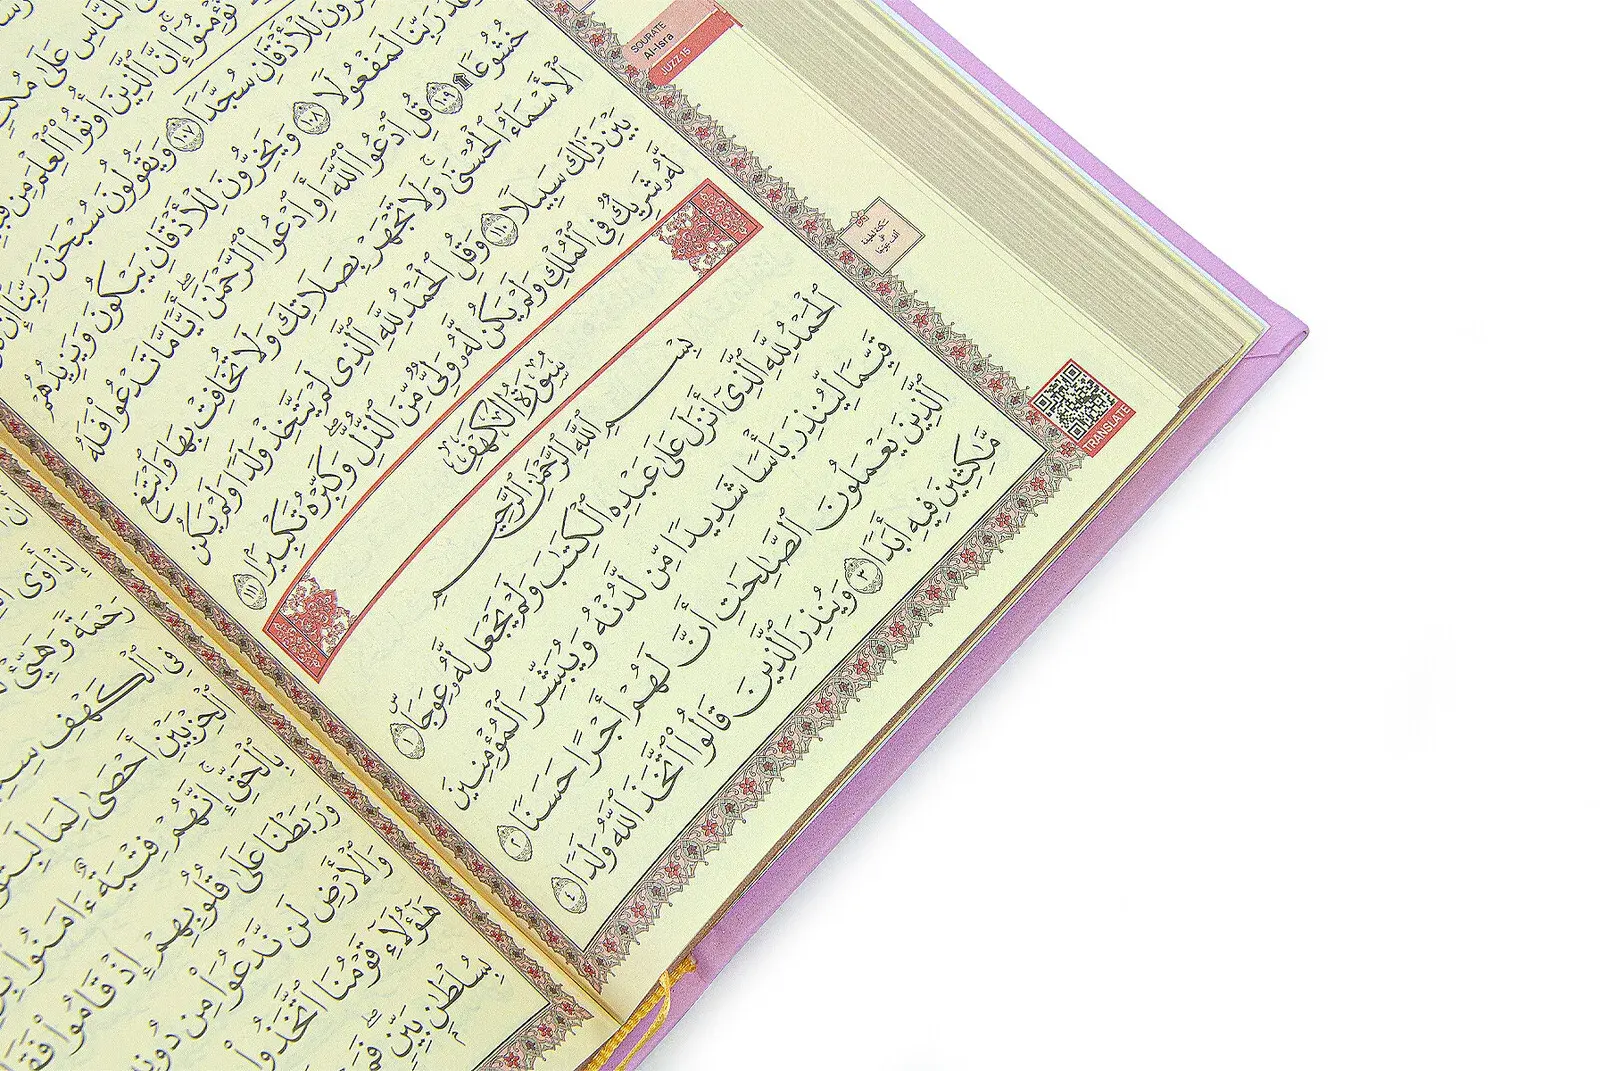 ٱلنَّاسِ عَلَىٰ مُكْثٍ
تُؤْمِنُوٓا۟ ۚ إِنَّ ٱلَّذِينَ أُوتُوا۟ ٱلْعِلْمَ مِن
يَخِرُّونَ لِلْأَذْقَانِ سُجَّدًا ١٠٧ وَيَقُولُونَ سُبْحَٰنَ رَبِّنَآ إِن
وَعْدُ رَبِّنَا لَمَفْعُولًا ١٠٨ وَيَخِرُّونَ لِلْأَذْقَانِ يَبْكُونَ وَيَزِيدُهُمْ
خُشُوعًا ۩ ١٠٩ قُلِ ٱدْعُوا۟ ٱللَّهَ أَوِ ٱدْعُوا۟ ٱلرَّحْمَٰنَ ۖ أَيًّا مَّا تَدْعُوا۟ فَلَهُ
ٱلْأَسْمَآءُ ٱلْحُسْنَىٰ ۚ وَلَا تَجْهَرْ بِصَلَاتِكَ وَلَا تُخَافِتْ بِهَا وَٱبْتَغِ
بَيْنَ ذَٰلِكَ سَبِيلًا ١١٠ وَقُلِ ٱلْحَمْدُ لِلَّهِ ٱلَّذِى لَمْ يَتَّخِذْ وَلَدًا وَلَمْ يَكُن
لَّهُۥ شَرِيكٌ فِى ٱلْمُلْكِ وَلَمْ يَكُن لَّهُۥ وَلِىٌّ مِّنَ ٱلذُّلِّ ۖ وَكَبِّرْهُ تَكْبِيرًۢا ١١١
سُورَةُ الكَهْفِ
بِسْمِ ٱللَّهِ ٱلرَّحْمَٰنِ ٱلرَّحِيمِ
ٱلْحَمْدُ لِلَّهِ ٱلَّذِىٓ أَنزَلَ عَلَىٰ عَبْدِهِ ٱلْكِتَٰبَ وَلَمْ يَجْعَل لَّهُۥ عِوَجَا ۜ ١
قَيِّمًا لِّيُنذِرَ بَأْسًا شَدِيدًا مِّن لَّدُنْهُ وَيُبَشِّرَ ٱلْمُؤْمِنِينَ
ٱلَّذِينَ يَعْمَلُونَ ٱلصَّٰلِحَٰتِ أَنَّ لَهُمْ أَجْرًا حَسَنًا ٢
مَّٰكِثِينَ فِيهِ أَبَدًا ٣ وَيُنذِرَ ٱلَّذِينَ قَالُوا۟ ٱتَّخَذَ ٱللَّهُ وَلَدًا ٤
SOURATE
Al-Isra
JUZZ 15
TRANSLATE
إِذْ أَوَى
رَحْمَةً وَهَيِّئْ
فِى ٱلْكَهْفِ
ٱلْحِزْبَيْنِ أَحْصَىٰ لِمَا
بِٱلْحَقِّ ۚ إِنَّهُمْ فِتْيَةٌ ءَامَنُوا۟
وَرَبَطْنَا عَلَىٰ قُلُوبِهِمْ إِذْ قَامُوا۟
وَٱلْأَرْضِ لَن نَّدْعُوَا۟ مِن
هَٰٓؤُلَآءِ قَوْمُنَا ٱتَّخَذُوا۟
بِسُلْطَٰنٍۭ بَيِّنٍ ۖ